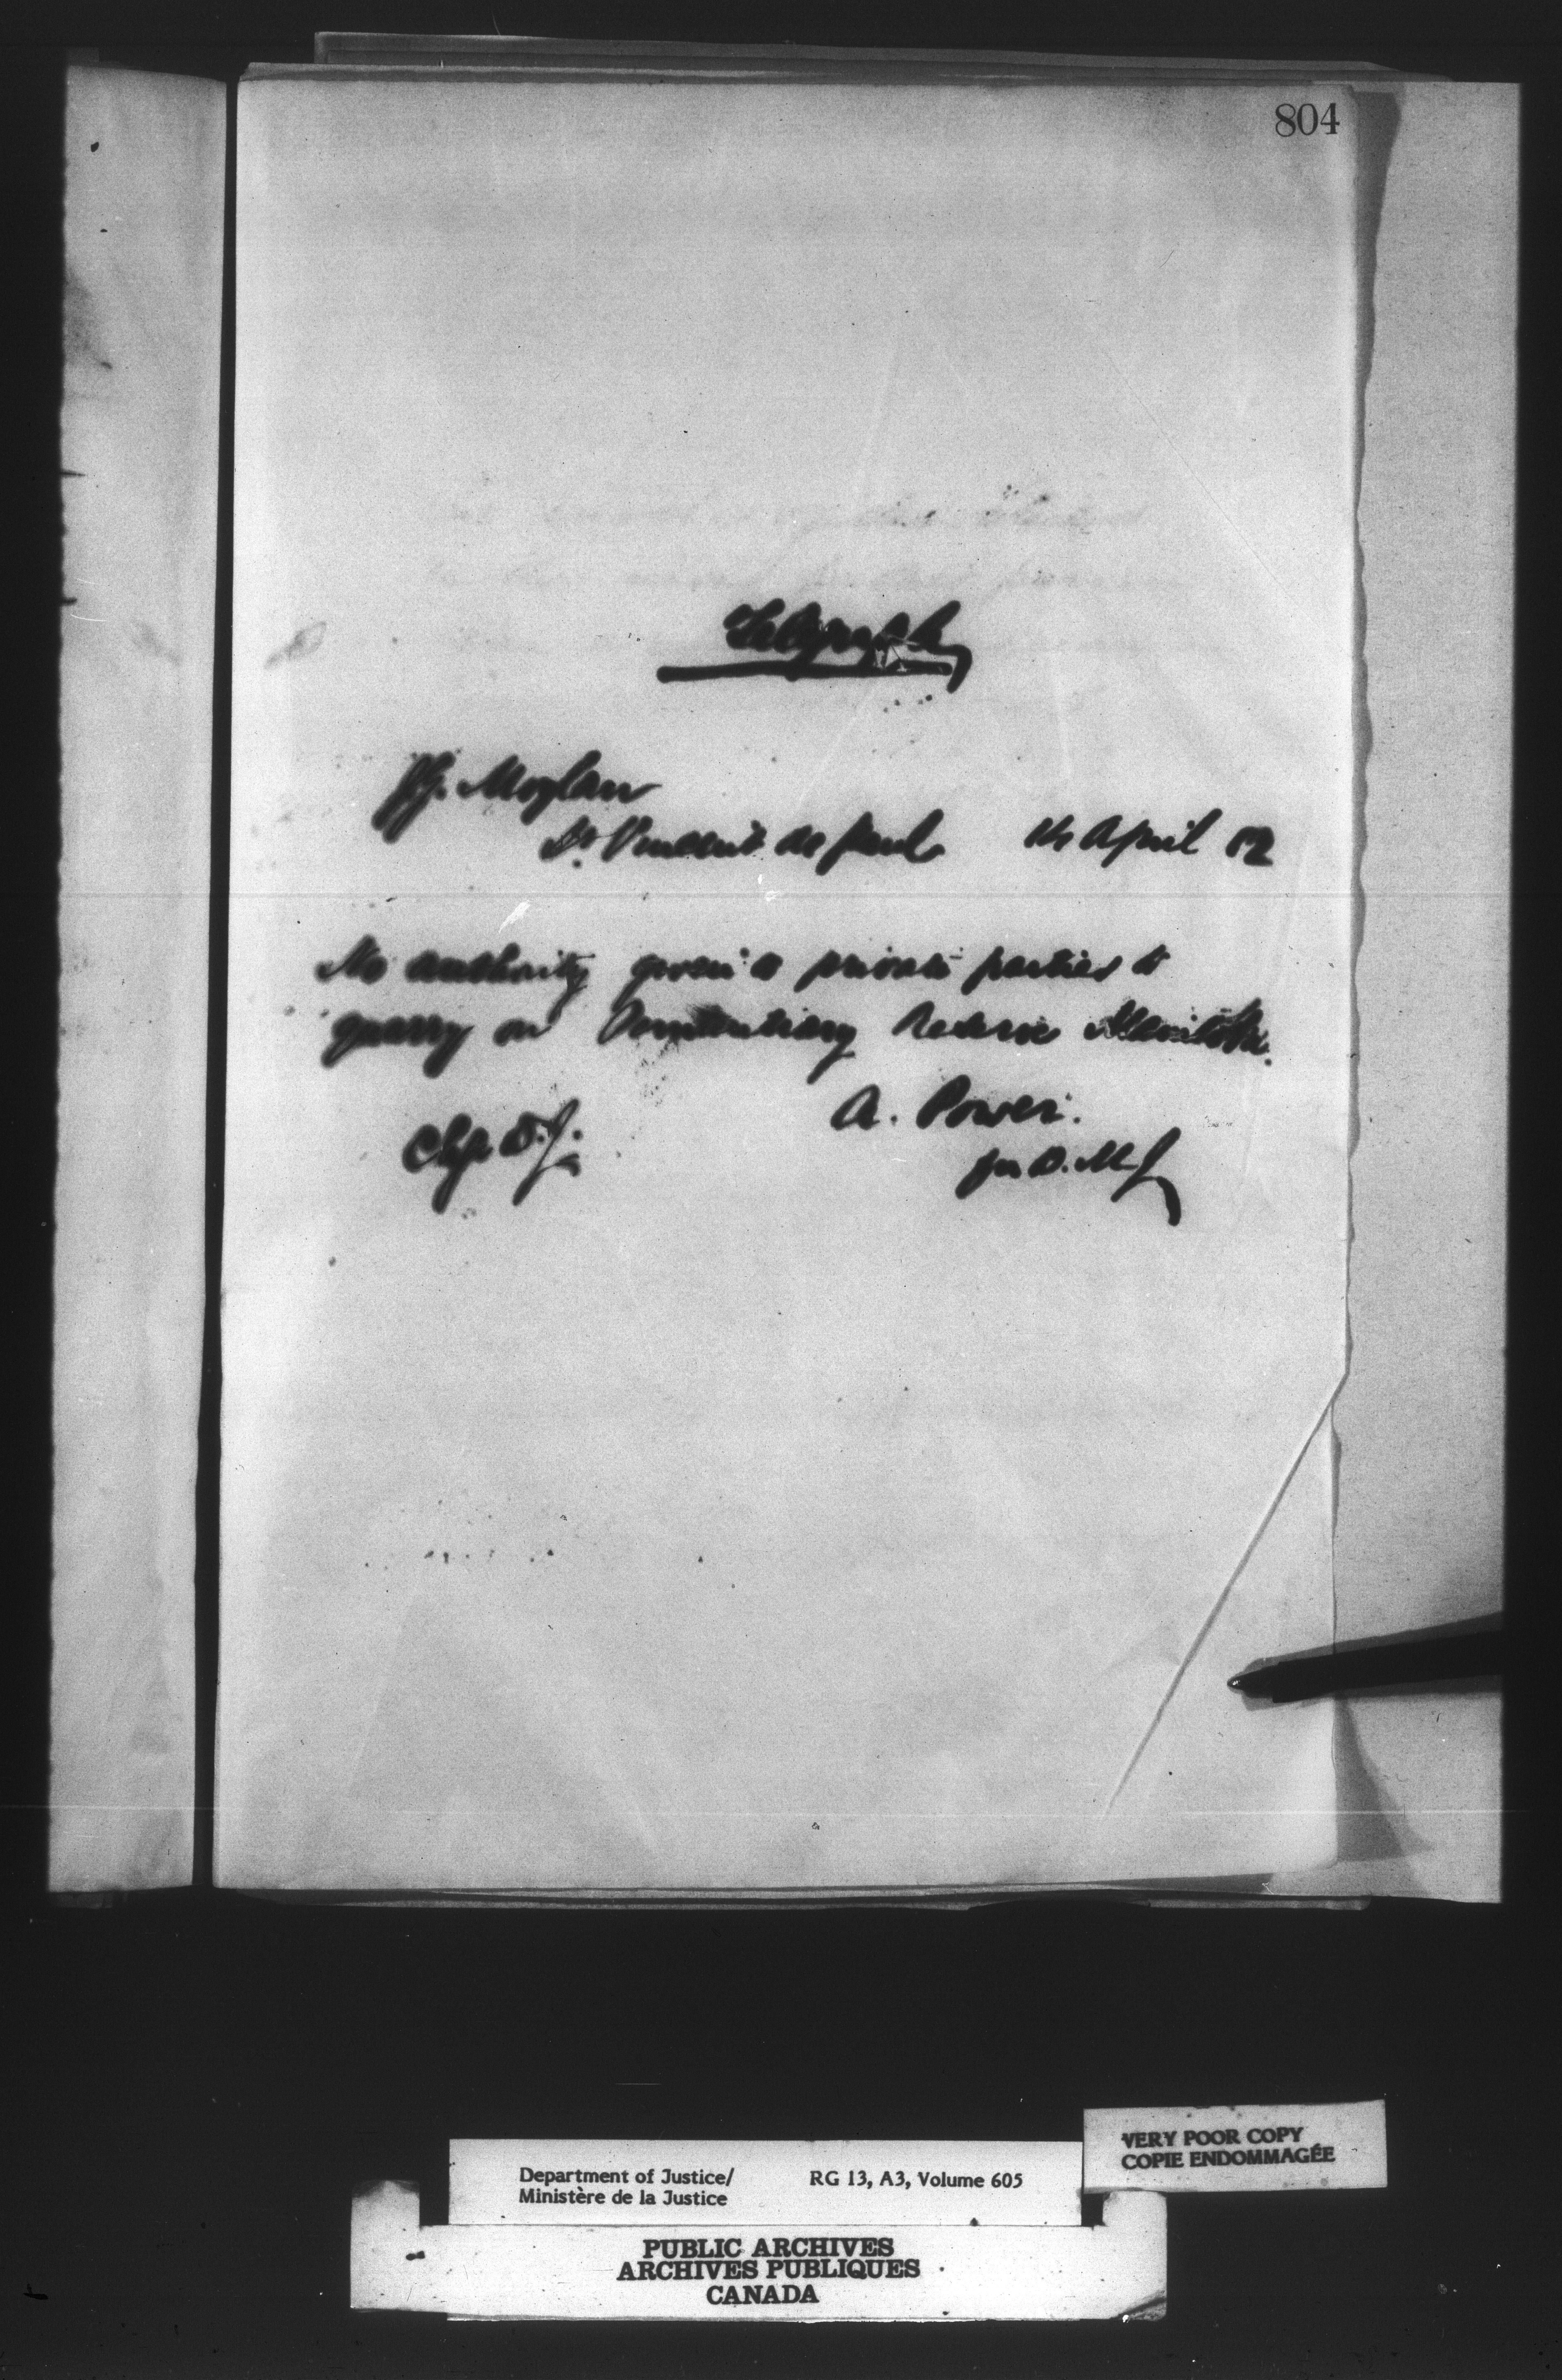 804
Telegraph
J.G. Moylan
St Vincent de Paul 14 April 82
No authority given to private parties to
quarry on Penitentiary Reserve Manitoba.
A. Power.
Chge D.J.
for D.M.J.
Department of Justice/ RG 13, A3, Volume 605
Ministère de la Justice
VERY POOR COPY
COPIE ENDOMMAGÉE
PUBLIC ARCHIVES
ARCHIVES PUBLIQUES
CANADA